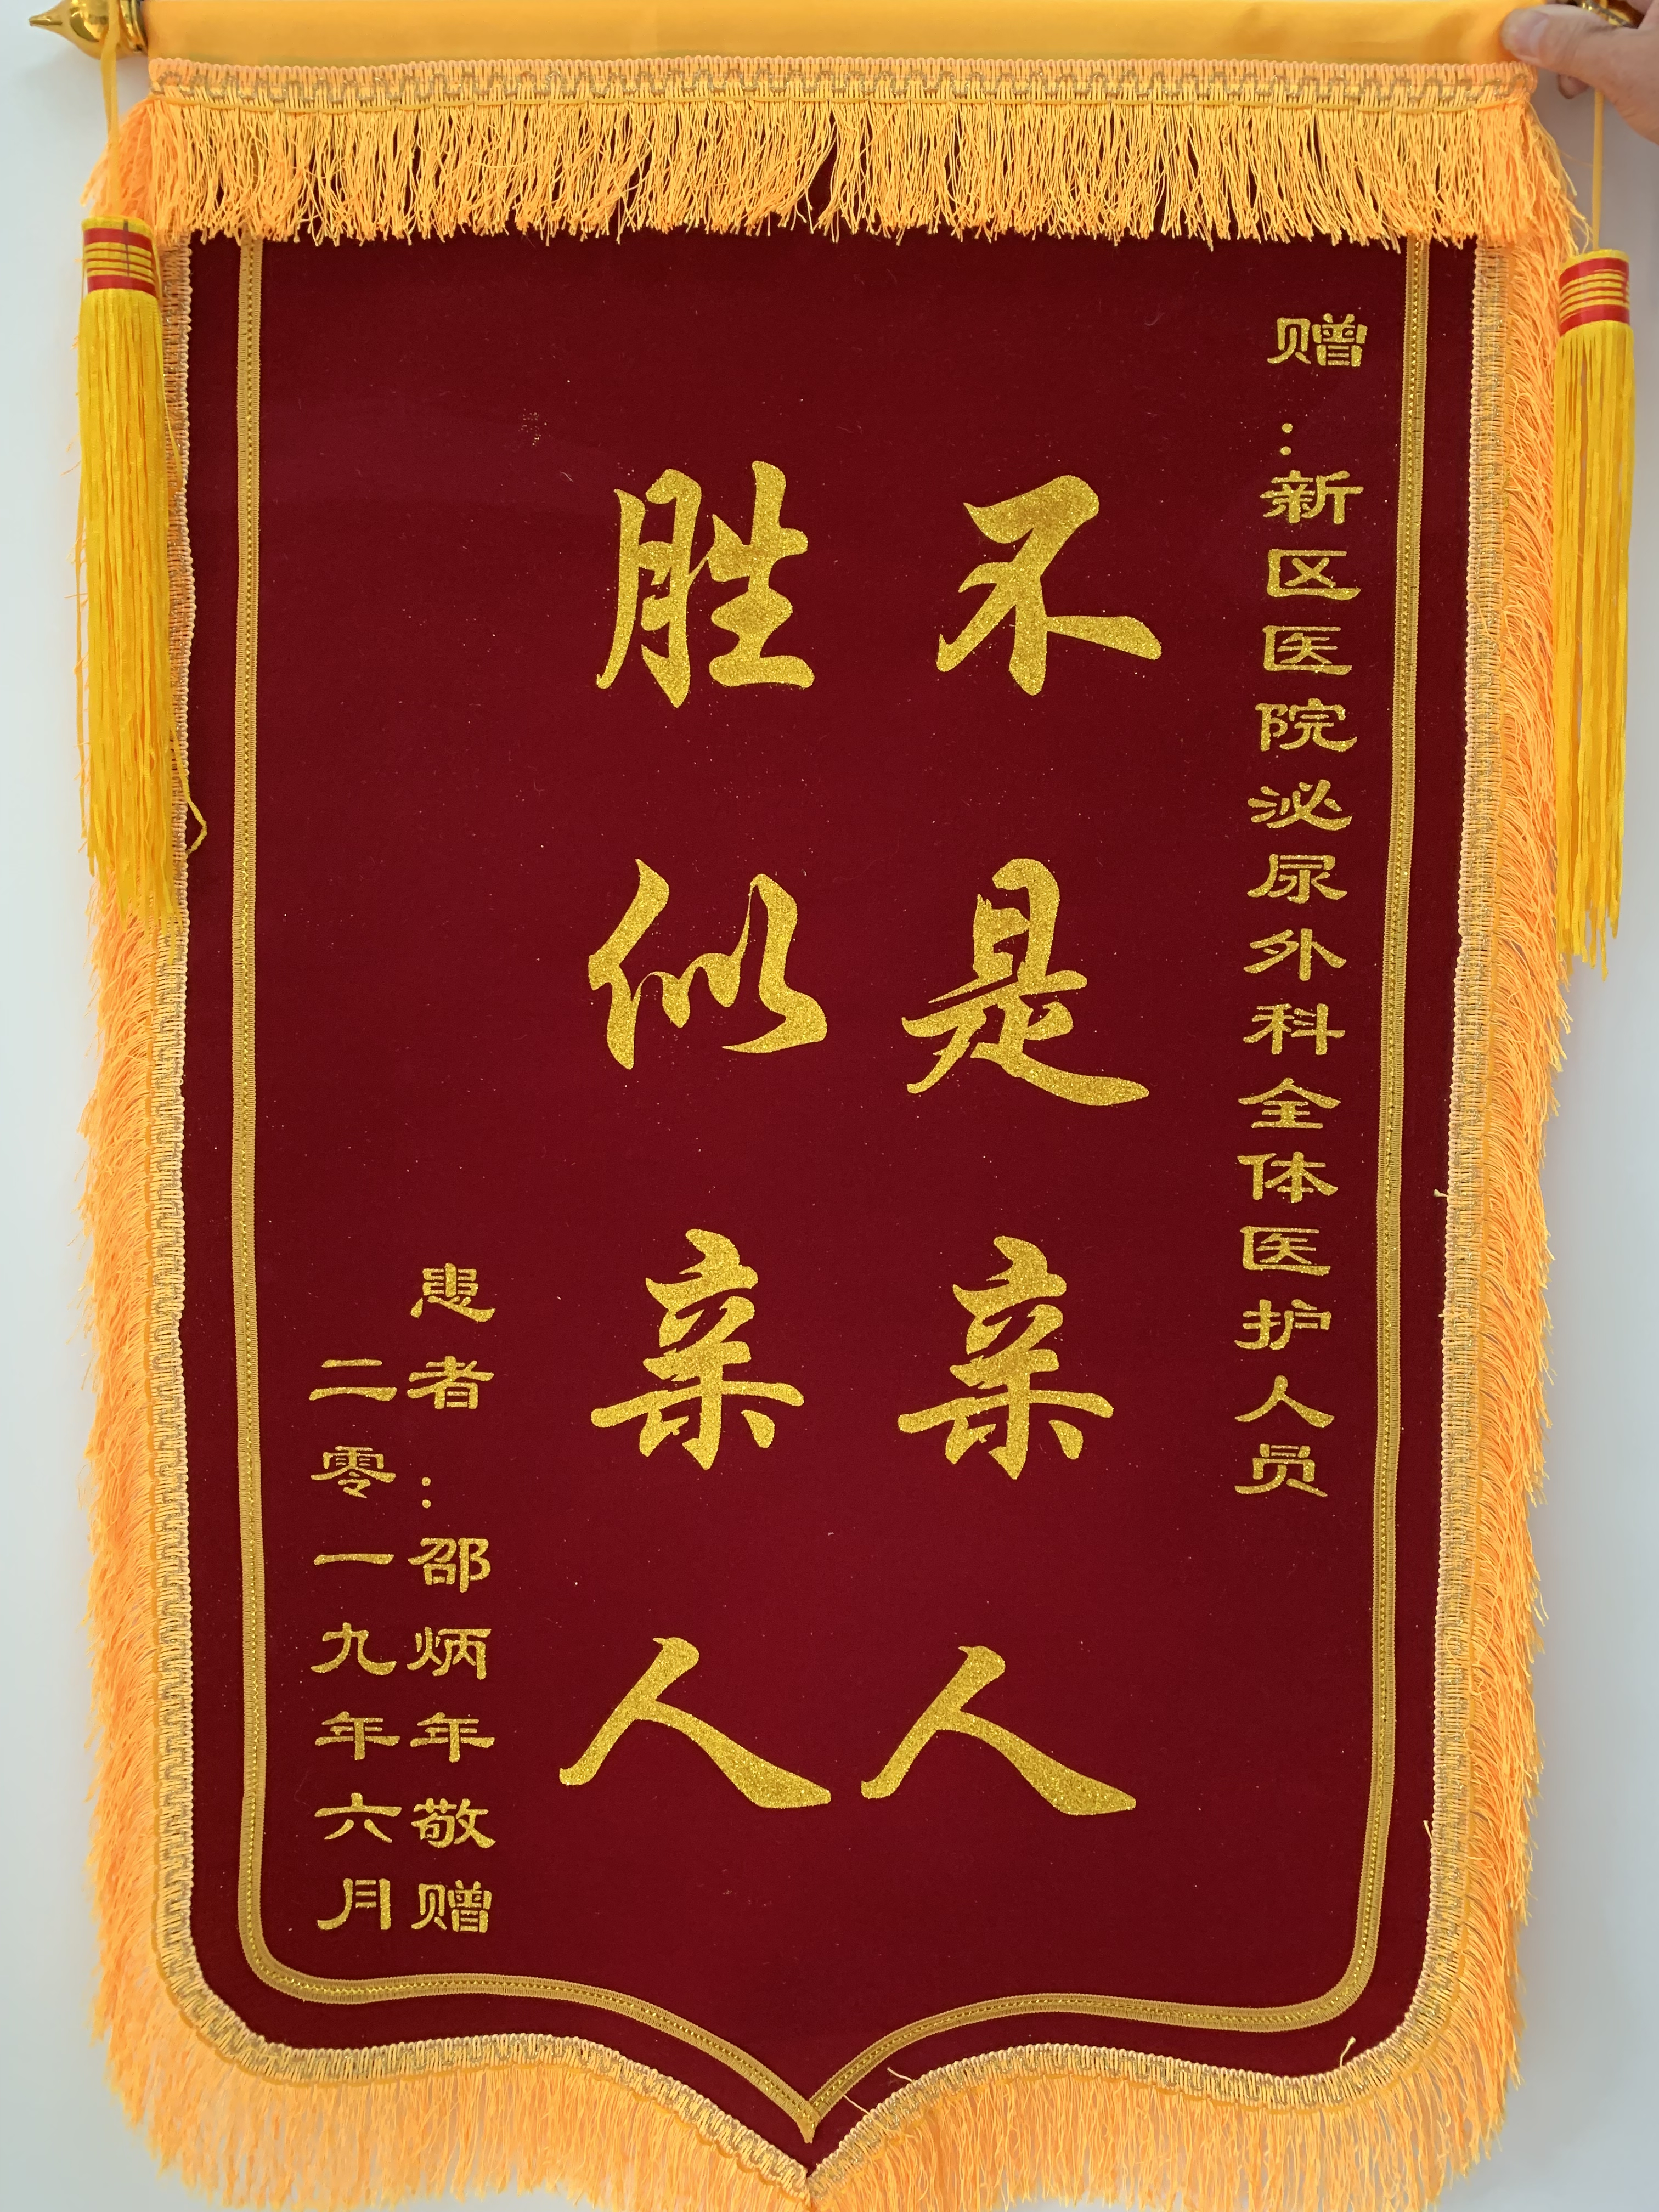 赠：新区医院泌尿外科全体医护人员
不是亲人
胜似亲人
患者：邵炳年敬赠
二零一九年六月